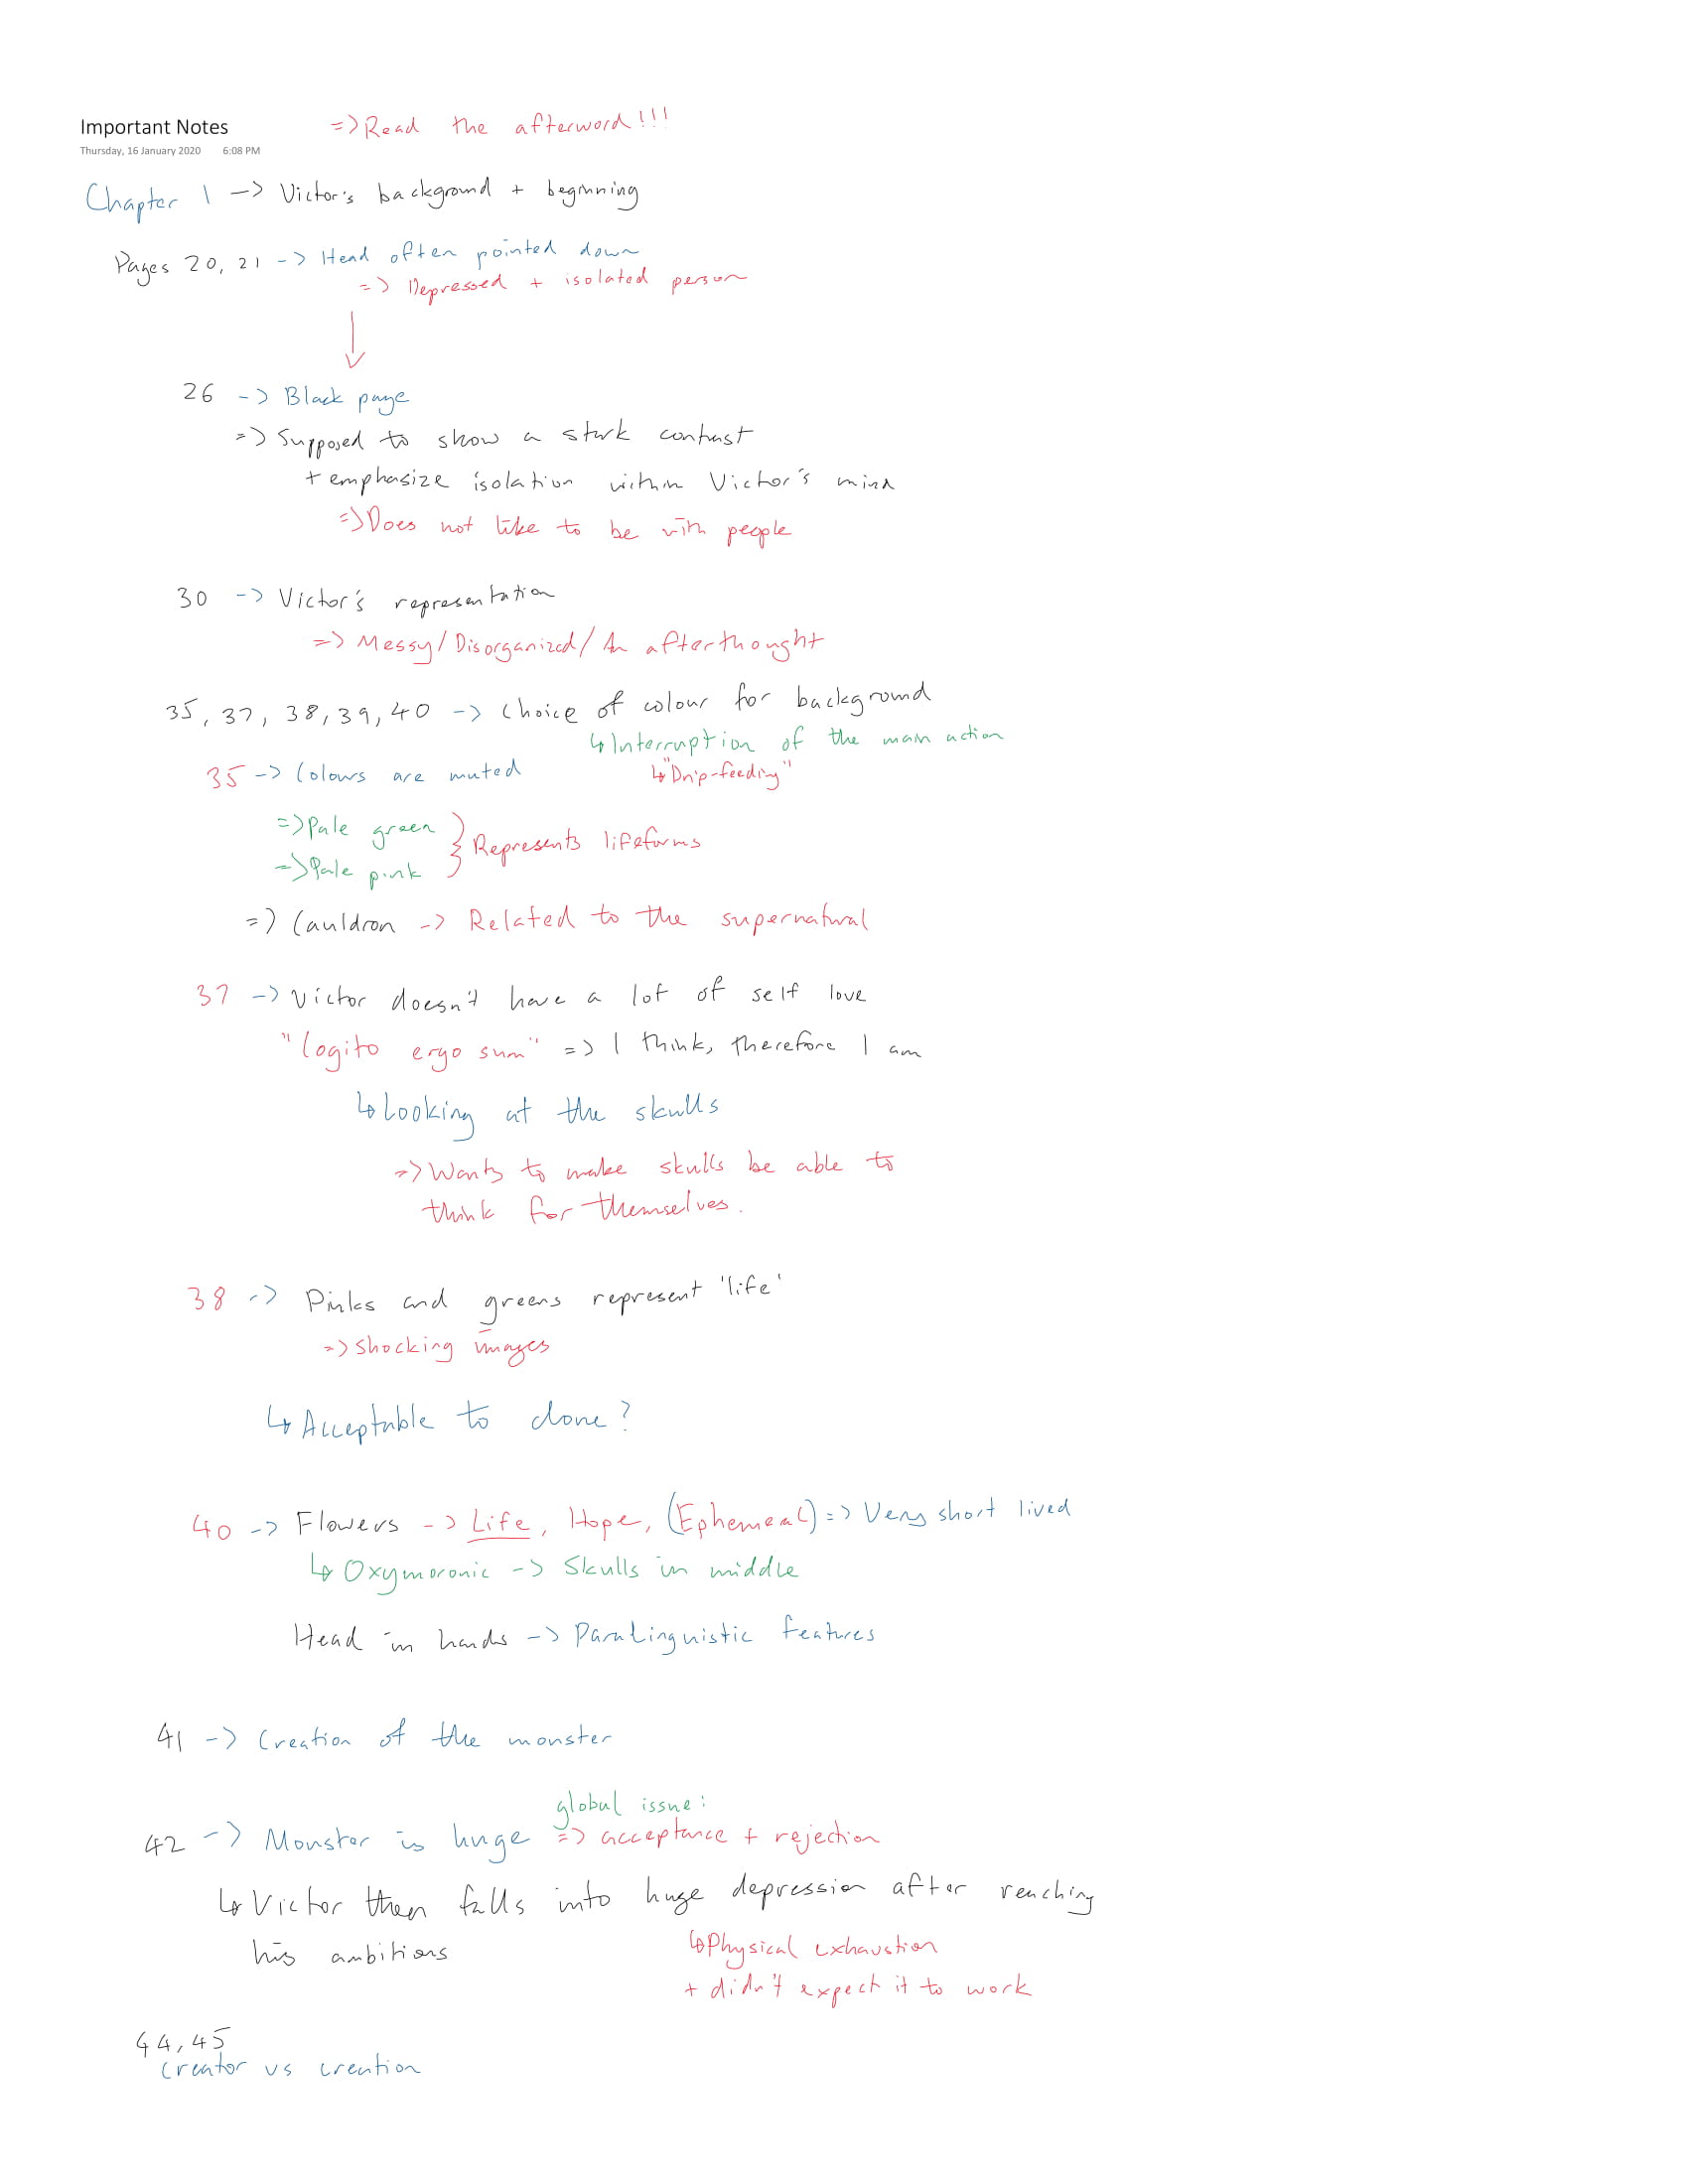 Important Notes => Read the afterword!!!
Thursday, 16 January 2020 6:08 PM
Chapter 1 -> Victor's background + beginning
Pages 20, 21 -> Head often pointed down
=> Depressed + isolated person
26 -> Black page
=> Supposed to show a stark contrast
+ emphasize isolation within Victor's mind
=> Does not like to be with people
30 -> Victor's representation
=> Messy/Disorganized/An afterthought
35, 37, 38, 39, 40 -> Choice of colour for background
↳ Interruption of the main action
35 -> Colours are muted ↳ "Drip-feeding"
=> Pale green
=> Pale pink } Represents lifeforms
=> Cauldron -> Related to the supernatural
37 -> Victor doesn't have a lot of self love
"Cogito ergo sum" => I think, therefore I am
↳ Looking at the skulls
=> Wants to make skulls be able to
think for themselves.
38 -> Pinks and greens represent 'life'
=> Shocking images
↳ Acceptable to clone?
40 -> Flowers -> Life, Hope, (Ephemeal) => Very short lived
↳ Oxymoronic -> Skulls in middle
Head in hands -> Paralinguistic features
41 -> Creation of the monster
global issue:
42 -> Monster is huge => acceptance + rejection
↳ Victor then falls into huge depression after reaching
his ambitions ↳ Physical exhaustion
+ didn't expect it to work
44, 45
Creator vs creation